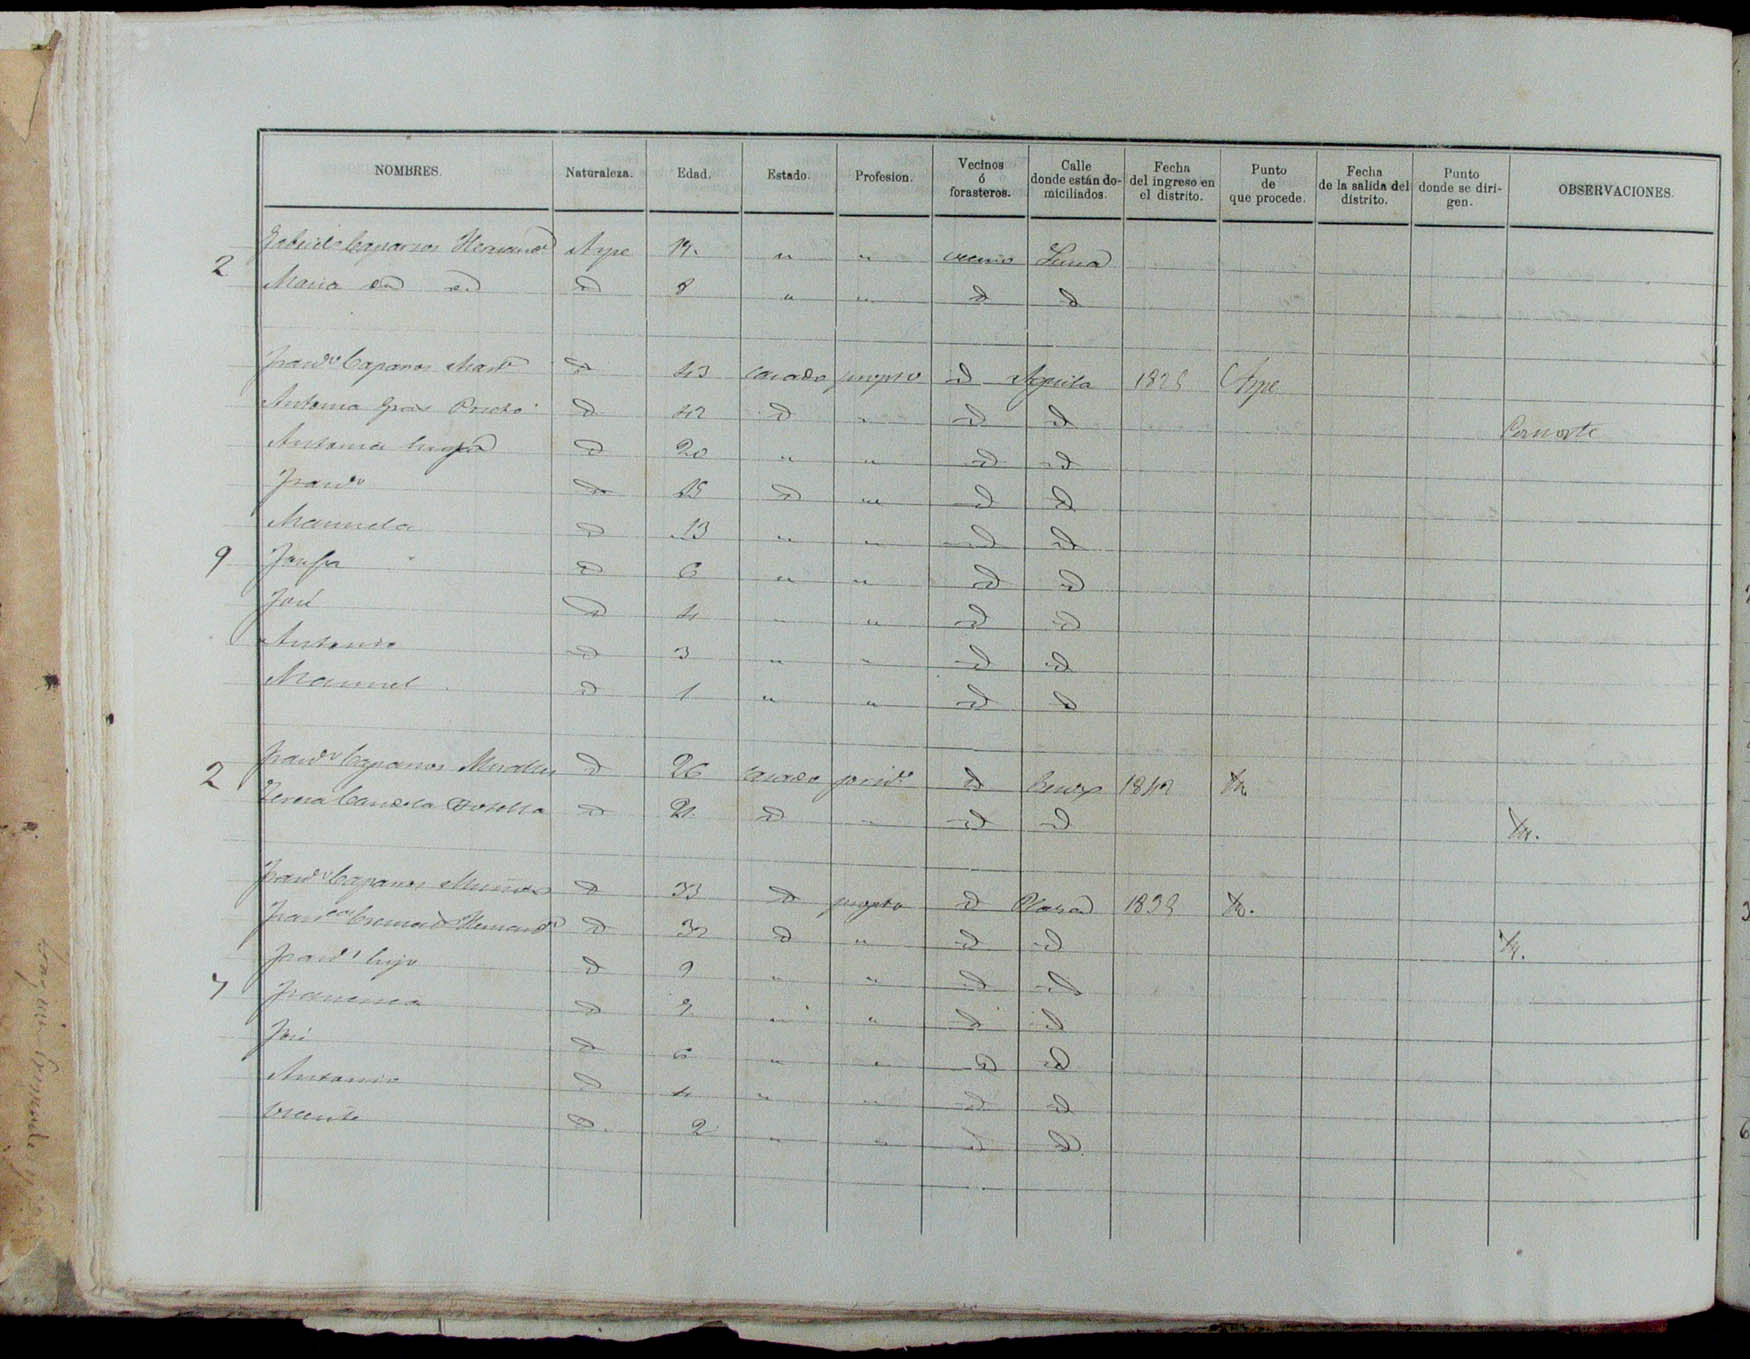 NOMBRES. Naturaleza. Edad. Estado. Profesion. Vecinos ó forasteros. Calle donde están domiciliados. Fecha del ingreso en el distrito. Punto de que procede. Fecha de la salida del distrito. Punto donde se dirigen. OBSERVACIONES.
2
Gabriel Caparros Hernand.z Aspe 14. " " vecino
Maria id id id 8 " " id id
Fran.co Caparros Mart.z id 43 casado propio id Aguila 182 Aspe
Antonia Prieto id 42 id " id id
Antonia hija id 20 " " id id
Fran.co id 15 id " id id
Manuela id 13 " " id id
9
Josefa id 6 " " id id
José id 4 " " id id
Antonio id 3 " " id id
Manuel id 1 " " id id
2
Fran.co Caparros Miralles id 26 casado id 1842 id
Teresa Candela Botella id 21 id " id id id.
Fran.co Caparros Muñoz id 33 id propio id Plaza 183 id.
Fran.ca Cremades Hernand.z id 32 id " id id id.
Fran.co hijo id 9 " " id id
7
Francisca id " " id id
José id 6 " " id id
Antonio id 4 " " id id
Vicente id. 2 " " id id